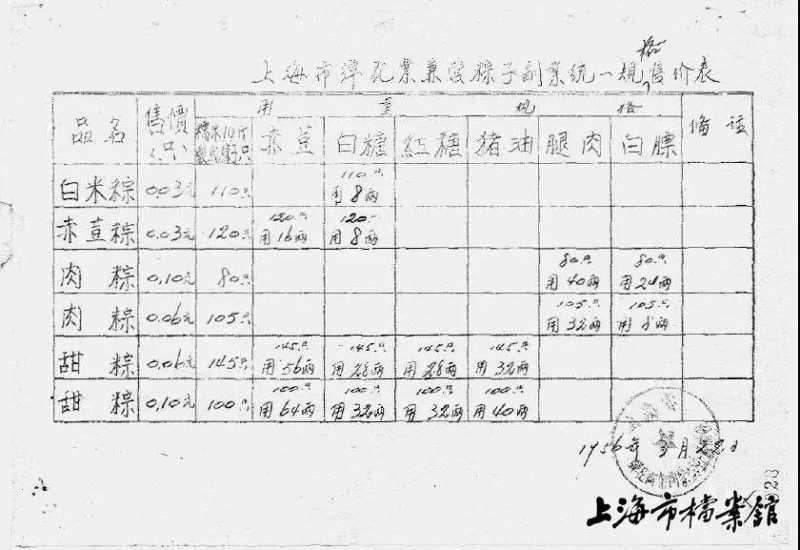 上海市洋瓦業兼營粽子副業統一規格售价表
品名 售價(只) 用量規格 備註
糯米10斤 只 赤荳 白糖 紅糖 猪油 腿肉 白膘
白米粽 0.03元 110只 110只用8兩
赤荳粽 0.03元 120只 120只用16兩 120只用8兩
肉粽 0.10元 80只 80只用40兩 80只用24兩
肉粽 0.06元 105只 105只用32兩 105只用8兩
甜粽 0.06元 145只 145只用56兩 145只用28兩 145只用28兩 145只用32兩
甜粽 0.10元 100只 100只用64兩 100只用32兩 100只用32兩 100只用40兩
1956年 月22日
上海市檔案館